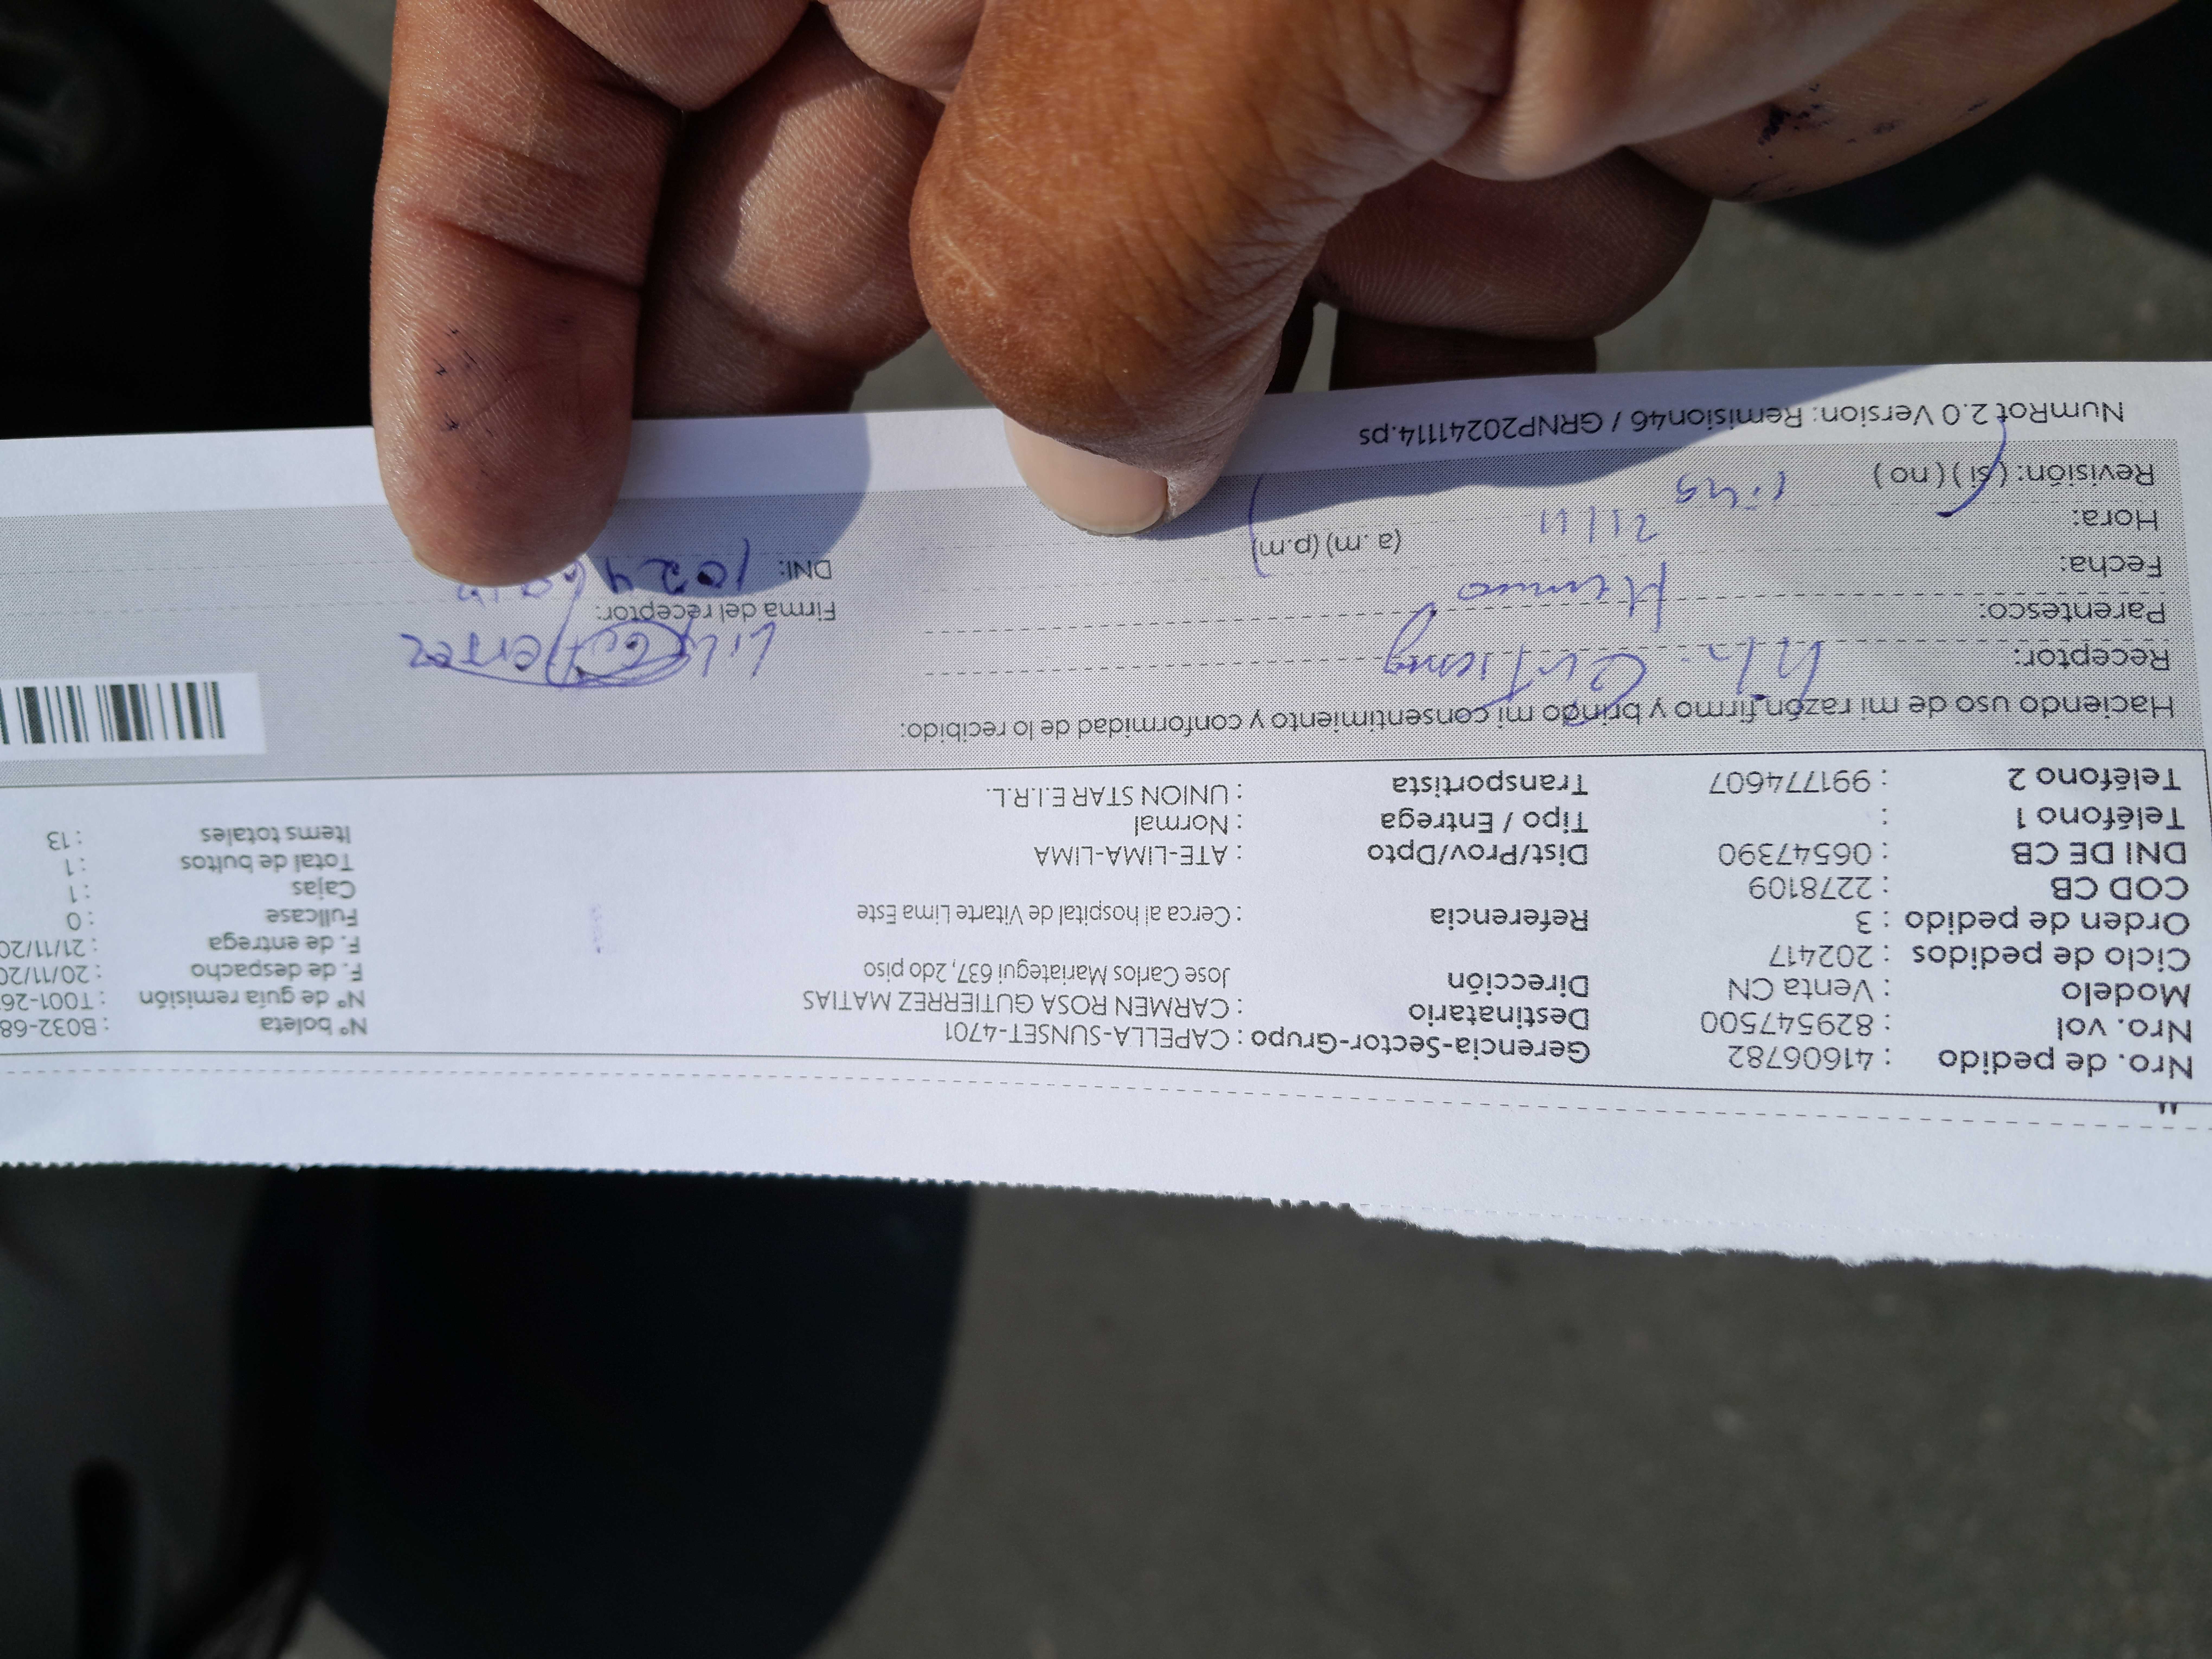 Nro. de pedido : 41606782 Gerencia-Sector-Grupo : CAPELLA-SUNSET-4701 Nº boleta : B032-68
Nro. vol : 829547500 Destinatario : CARMEN ROSA GUTIERREZ MATIAS Nº de guía remisión : T001-26
Modelo : Venta CN Dirección Jose Carlos Mariategui 637, 2do piso F. de despacho : 20/11/20
Ciclo de pedidos : 202417 F. de entrega : 21/11/20
Orden de pedido : 3 Referencia : Cerca al hospital de Vitarte Lima Este Fullcase : 0
COD CB : 2278109 Cajas : 1
DNI DE CB : 06547390 Dist/Prov/Dpto : ATE-LIMA-LIMA Total de bultos : 1
Teléfono 1 : Tipo / Entrega : Normal Items totales : 13
Teléfono 2 : 991774607 Transportista : UNION STAR E.I.R.L.
Haciendo uso de mi razón firmo y brindo mi consentimiento y conformidad de lo recibido:
Receptor:
Parentesco:
Firma del receptor:
Fecha: 21/11
DNI: 1024
Hora: (a. m) (p.m)
Revisión: ( si ) ( no )
NumRot 2.0 Version: Remision46 / GRNP20241114.ps